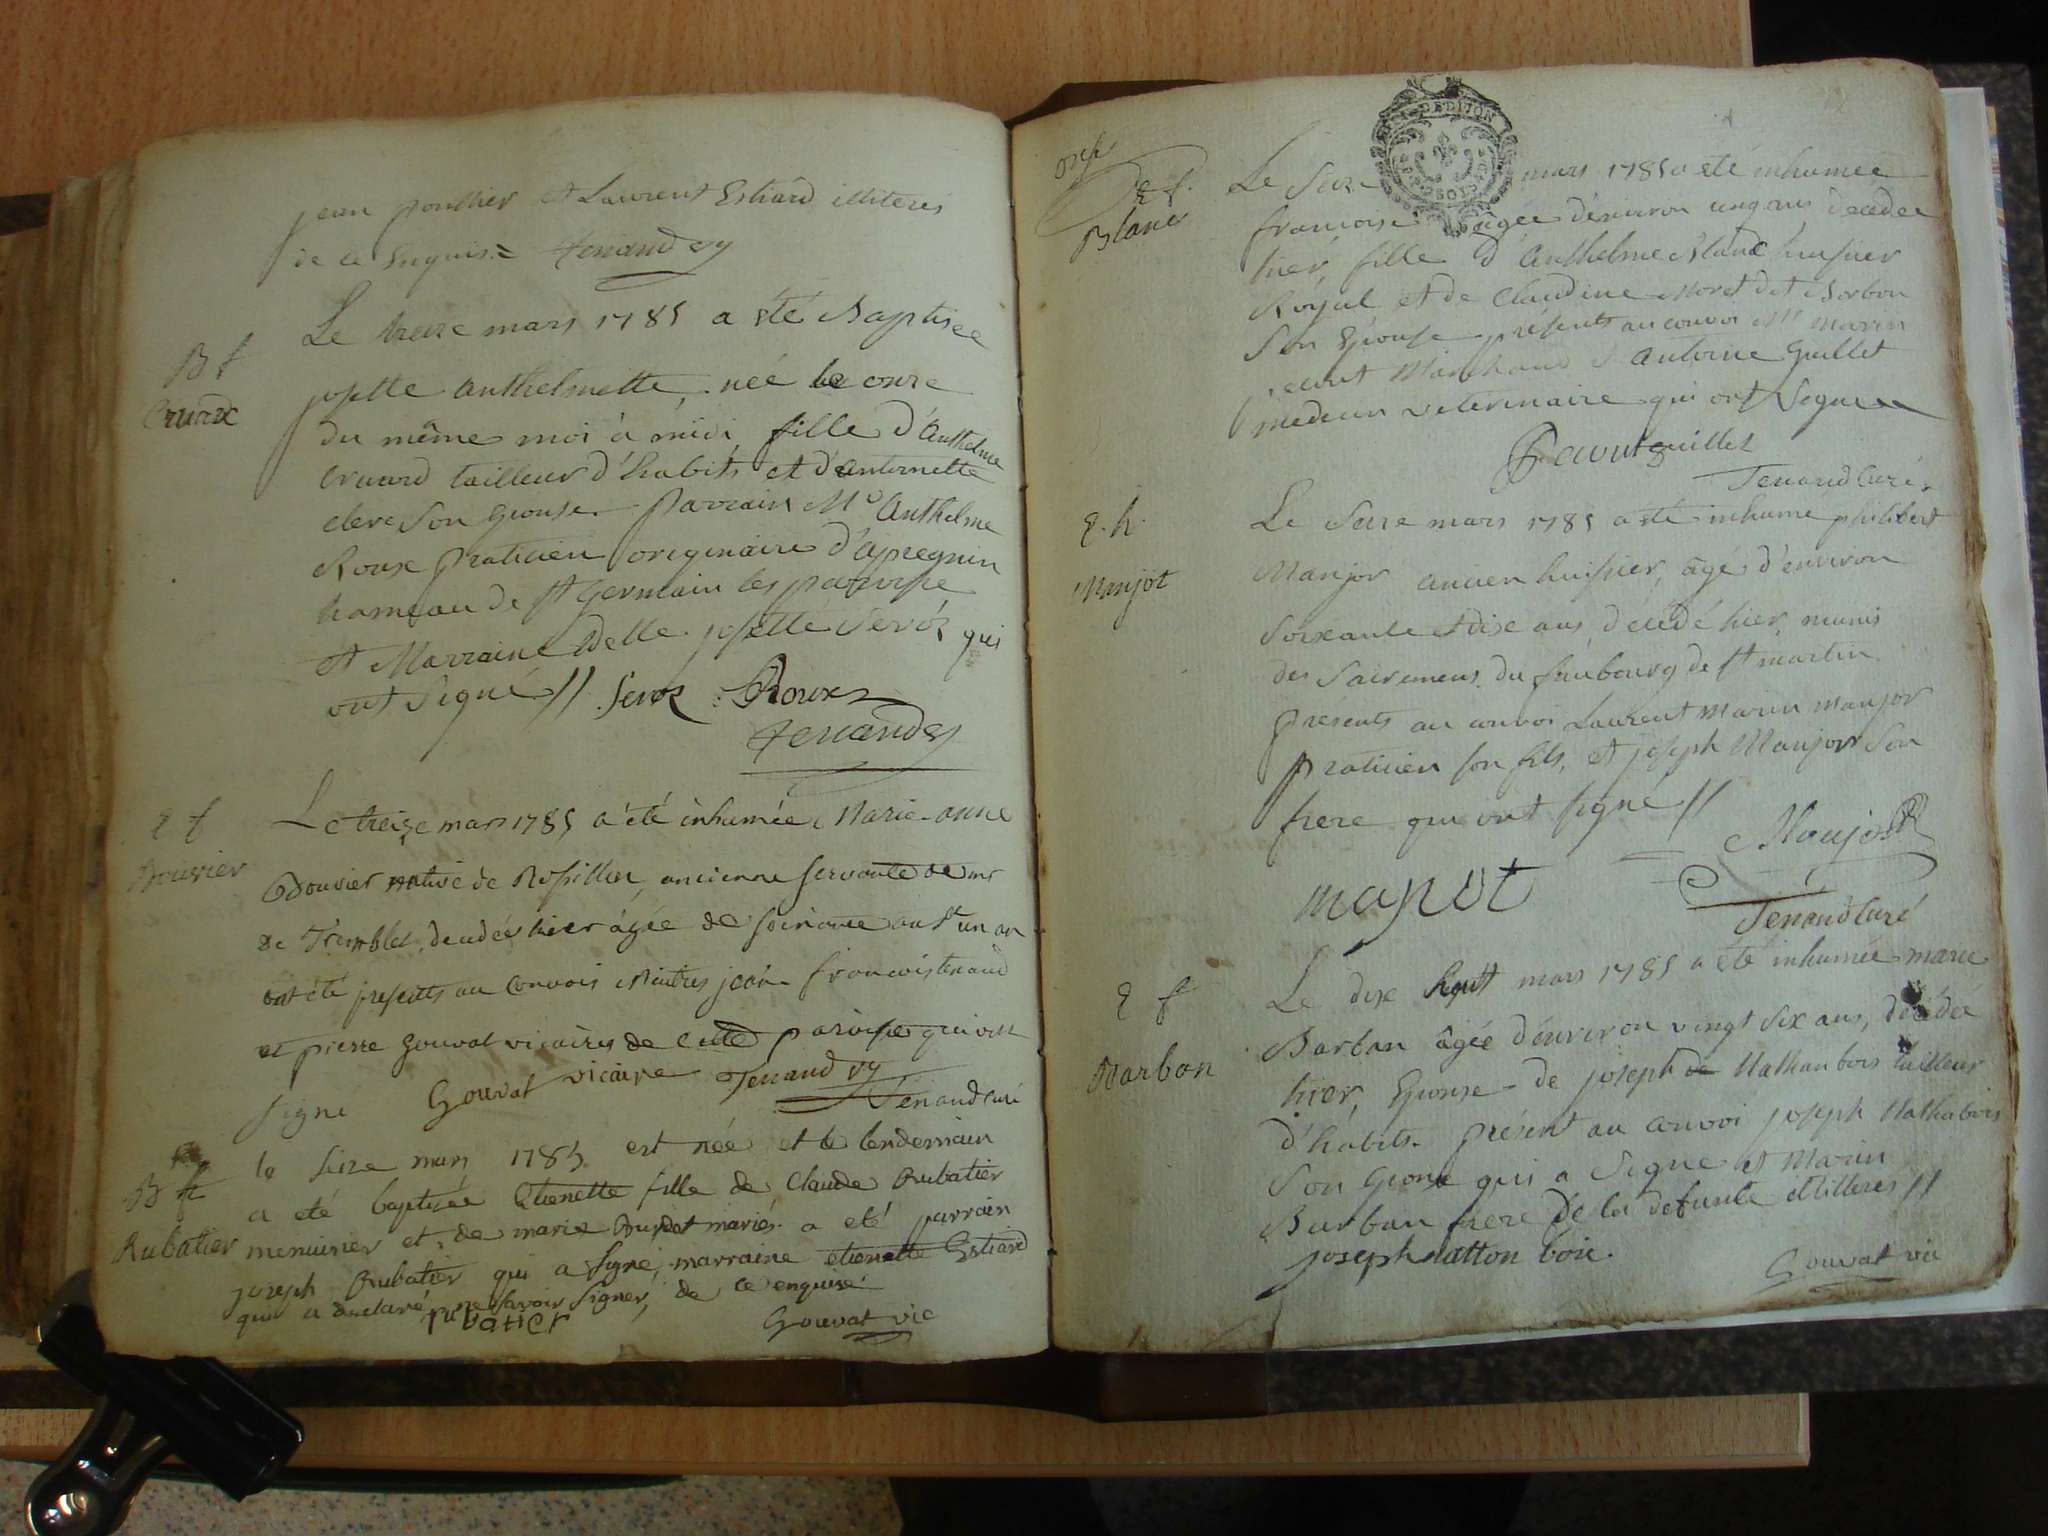 jean ponthier et Laurent Estiard illiteres
de ce enquis = Tenand vy
B f
Cruard
Le treize mars 1785 a été Baptisée
josette anthelmette, née le onze
du même moi à midi, fille d'Anthelme
cruard tailleur d'habits et d'antoinette
clerc son Epouse. Parrain Mr Anthelme
Roux praticien originaire d'apregnin
hameau de St Germain les paroisse
et Marraine Delle josette Seroz qui
ont Signé // Seroz Roux
Tenand vy
E f
Bouvier
Le treize mars 1785 a été inhumée Marie-anne
Bouvier native de Rossillon, ancienne servante de mr
de Tremblet, decedée hier âgée de soixante ans et un an
ont été presents au convois Maitres jean françois tenand
et pierre gouvat vicaires de cette paroisse qui ont
signe Gouvat vicaire Tenand vy
Tenand curé
B f
Rubatier
le seize mars 1785 est née et le lendemain
a été baptisée Etienette fille de Claude Rubatier
menuisier et de marie mariés. a été parrain
joseph Rubatier qui a signé, marraine etienette Estiard
qui a declaré ne savoir signer, de ce enquise.
rubatier Gouvat vic
E f.
Blanc
DE DIJON
Le Seize mars 1785 a eté inhumée
francoise âgée d'environ ung ans decedée
hier, fille d'Anthelme Blanc huissier
Royal et de Claudine Moret dit Borbon
Son Epouse présents au convoi Mr marin
Marchand & Antoine Guillet
medecin veterinaire qui ont Signé
guillet
Tenand Curé.
E. h.
Manjot
Le Seize mars 1785 a eté inhumé philibert
Manjot ancien huissier, âgé d'environ
Soixante et dix ans, décédé hier, munis
des Sacremens du faubourg de St martin
présents au convoi Laurent marin manjot
praticien son fils, et joseph Manjot son
frere qui ont signé //
Manjot
manjot
Tenand Curé
E f
Barban
Le dix Sept mars 1785 a été inhumée marie
Barban âgée d'environ vingt six ans, décédée
hier, Epouse de joseph de Nathan bois tailleur
d'habits. présent au convoi joseph Nathabois
Son Epoux qui a Signé et Marin
Barban frere de la defunte illiteres //
joseph natton boie.
Gouvat vic